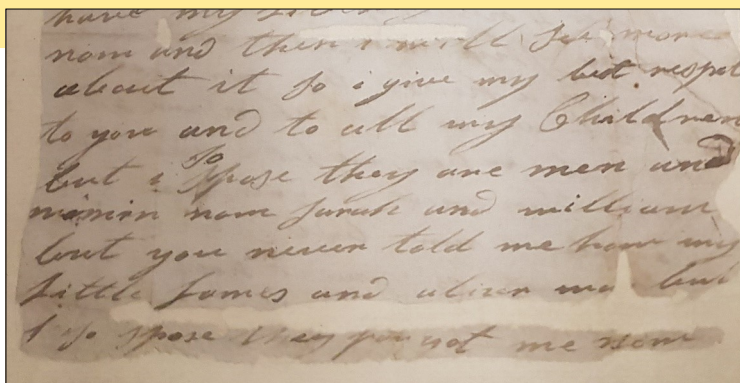 have my
now and then i will more
about it so i give my best
to you and to all my Children
but i so spose they are men and
now sarah and william
but you never told me how my
Little James and but
I so spose they me now